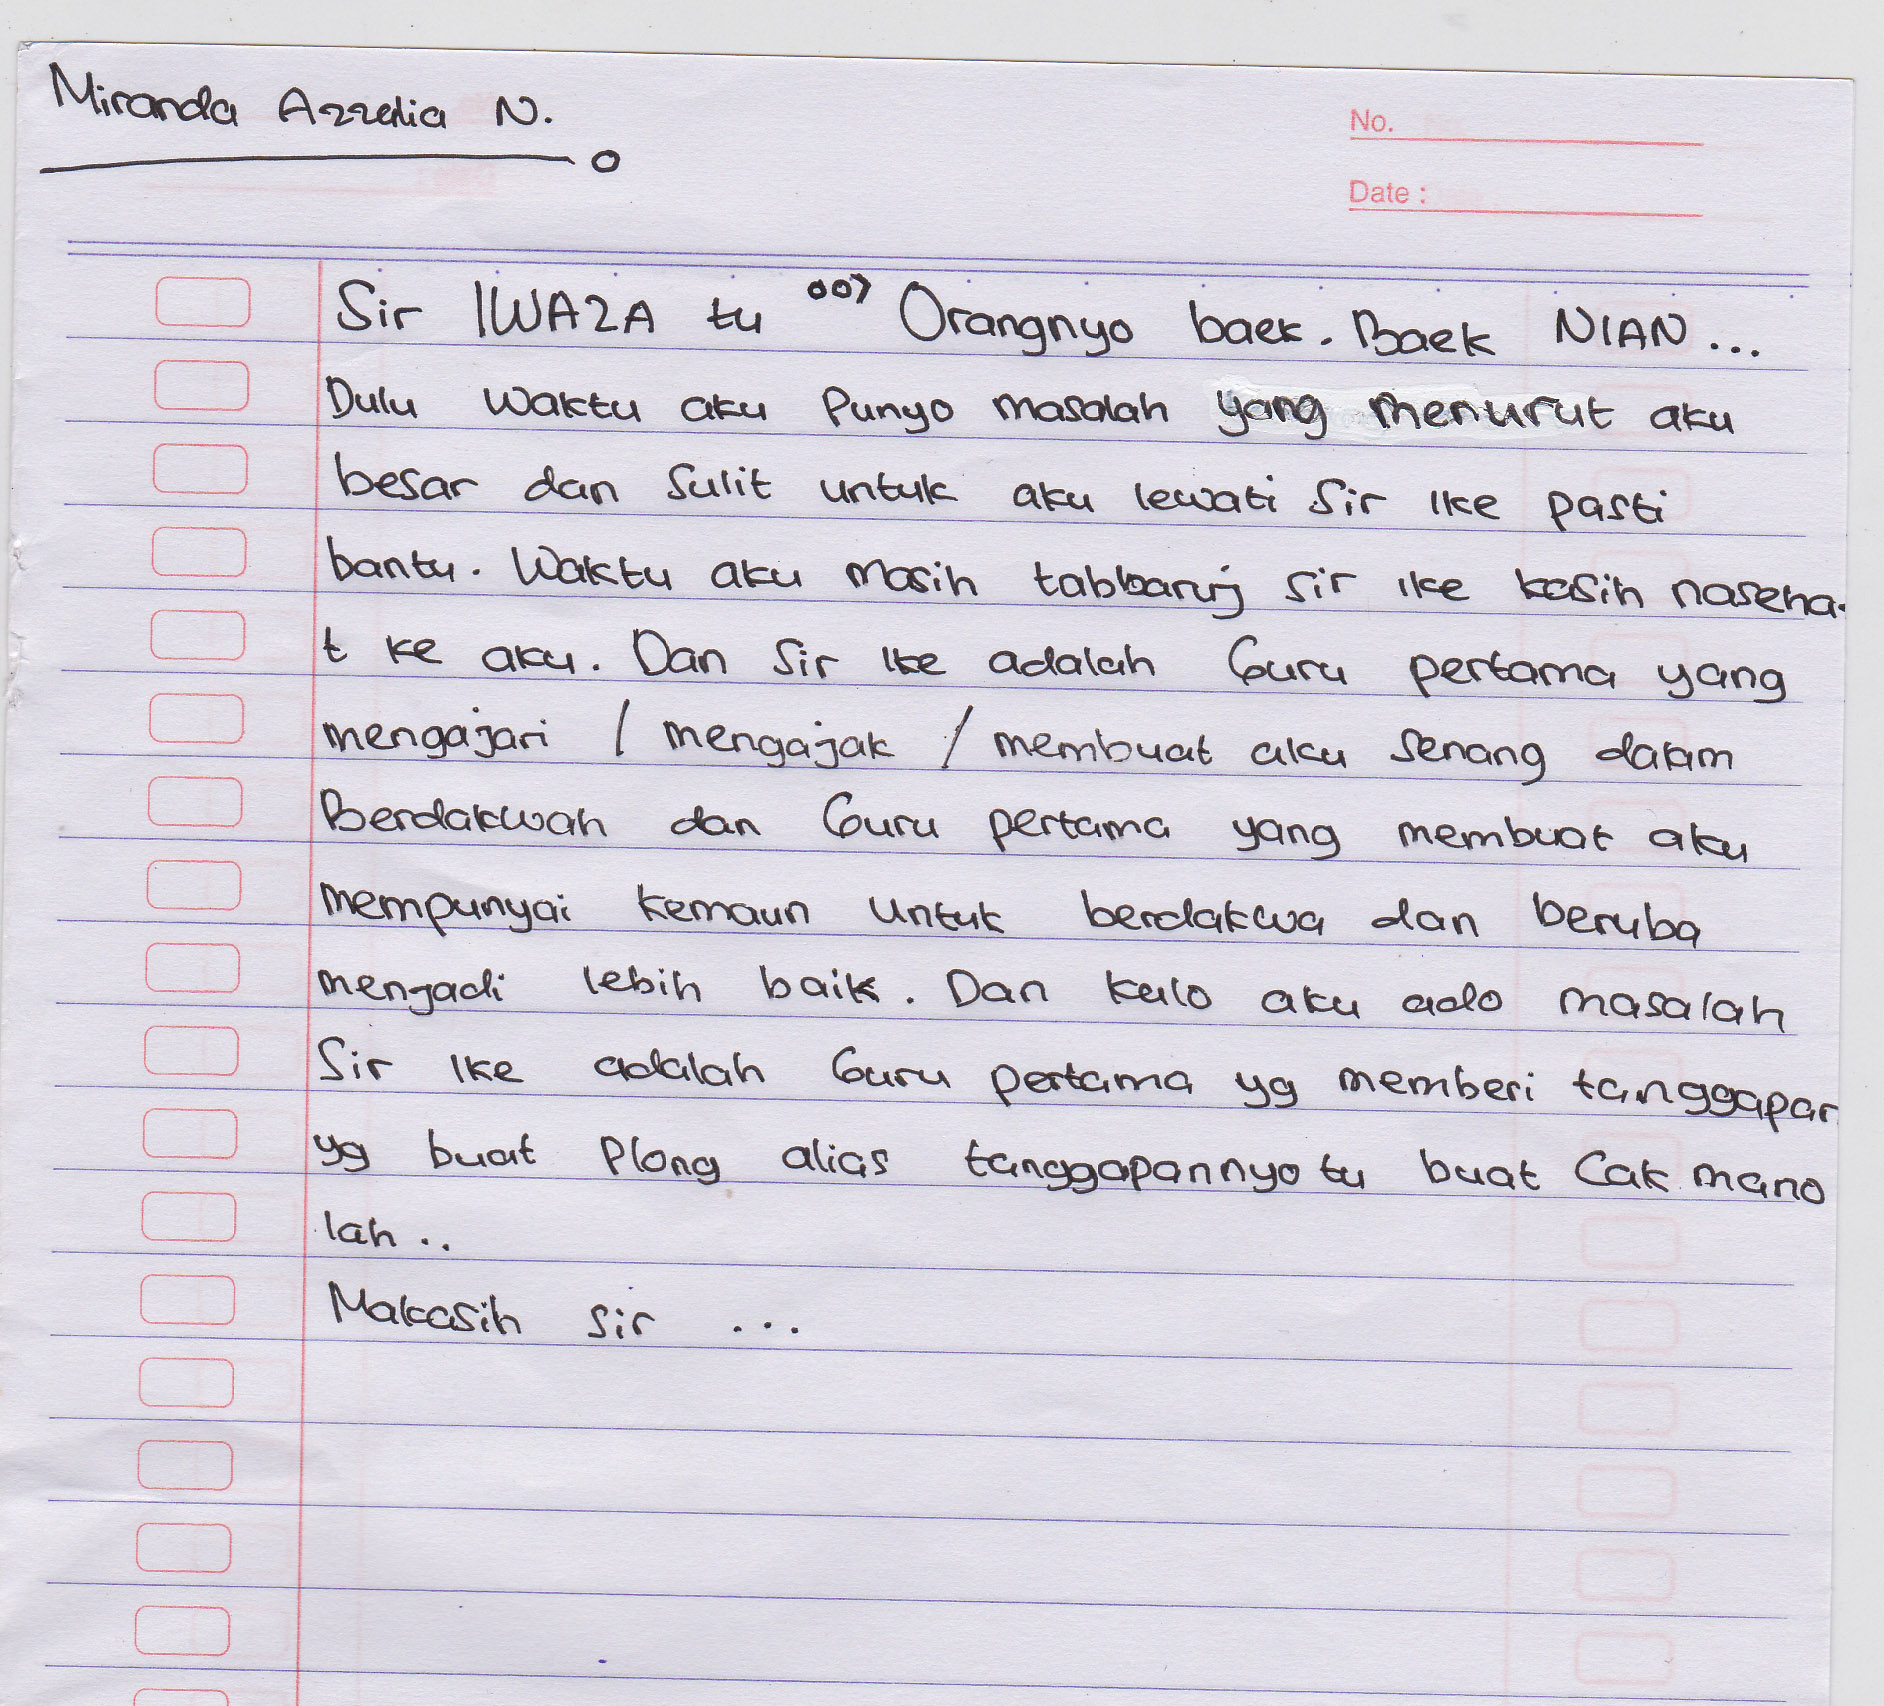 Miranda Azzelia N.
No.
Date :
Sir IWAZA tu 007 Orangnyo baek. Baek NIAN ...
Dulu waktu aku Punyo masalah yang menurut aku
besar dan sulit untuk aku lewati Sir Ike pasti
bantu. Waktu aku masih sir Ike kasih naseha-
t ke aku. Dan Sir Ike adalah Guru pertama yang
mengajari / mengajak / membuat aku senang dalam
Berdakwah dan Guru pertama yang membuat aku
mempunyai kemaun untuk berdakwa dan beruba
menjadi lebih baik. Dan kalo aku ado masalah
Sir Ike adalah Guru pertama yg memberi tanggapan
yg buat Plong alias tanggapannyo tu buat Cak mano
lah ..
Makasih sir ...